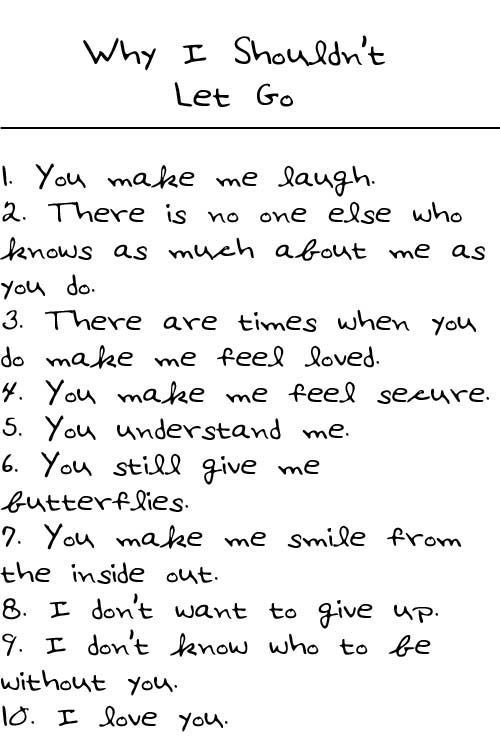 Why I Shouldn't
Let Go
1. You make me laugh.
2. There is no one else who
knows as much about me as
you do.
3. There are times when you
do make me feel loved.
4. You make me feel secure.
5. You understand me.
6. You still give me
butterflies.
7. You make me smile from
the inside out.
8. I don't want to give up.
9. I don't know who to be
without you.
10. I love you.